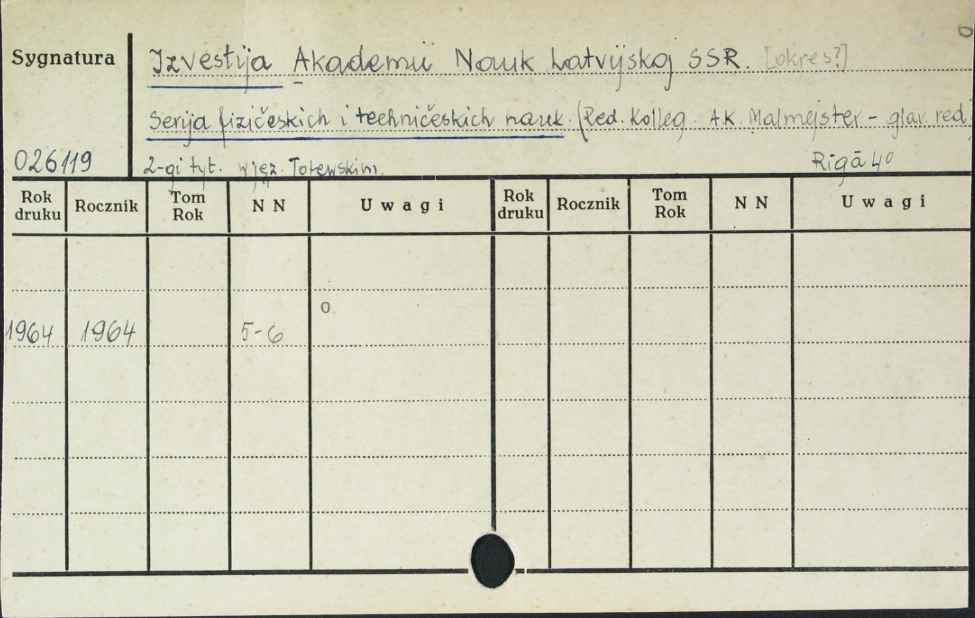 Sygnatura Izvestija Akademii Nauk Latvijskoj SSR. [okres?]
Serija fizičeskich i techničeskich nauk. (Red. Kolleg. A.K. Malmejster - glav. red.
026119 2-gi tyt. w jęz. Łotewskim. Rigā 4°
Rok druku Rocznik Tom Rok N N Uwagi Rok druku Rocznik Tom Rok N N Uwagi
o
1964 1964 5-6